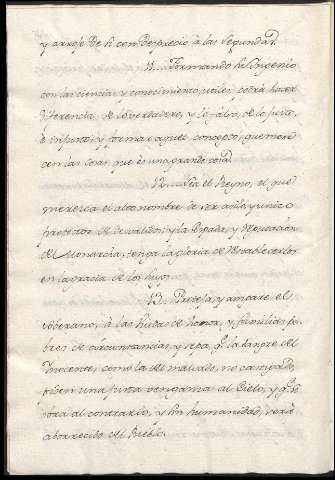 y arroje de sí con desprecio à las segundas.
11... Formando su Ingenio
con las ciencias, y conocimientos utiles, podrá hacer
diferencia de lo verdadero, y lo falso, de lo justo,
è injusto, y formar aquel concepto, que mere
cen las cosas, que es una grande cosa.
12... Sea el Reyno, el que
merezca el alto nombre de ser año y unico
protector de Monarchia, tenga la gloria de establecerlos
en la gracia de los suyos.
13... Proteja, y ampare el
soberano, à las hijas de honor, y familias po
bres de circunstancias, y sepa q.e la sangre del
Inocente, como la del malvado, no castigado,
piden una justa venganza al Cielo, y q.e si
obra al contrario, y sin humanidad, será
aborrecido del Pueblo.